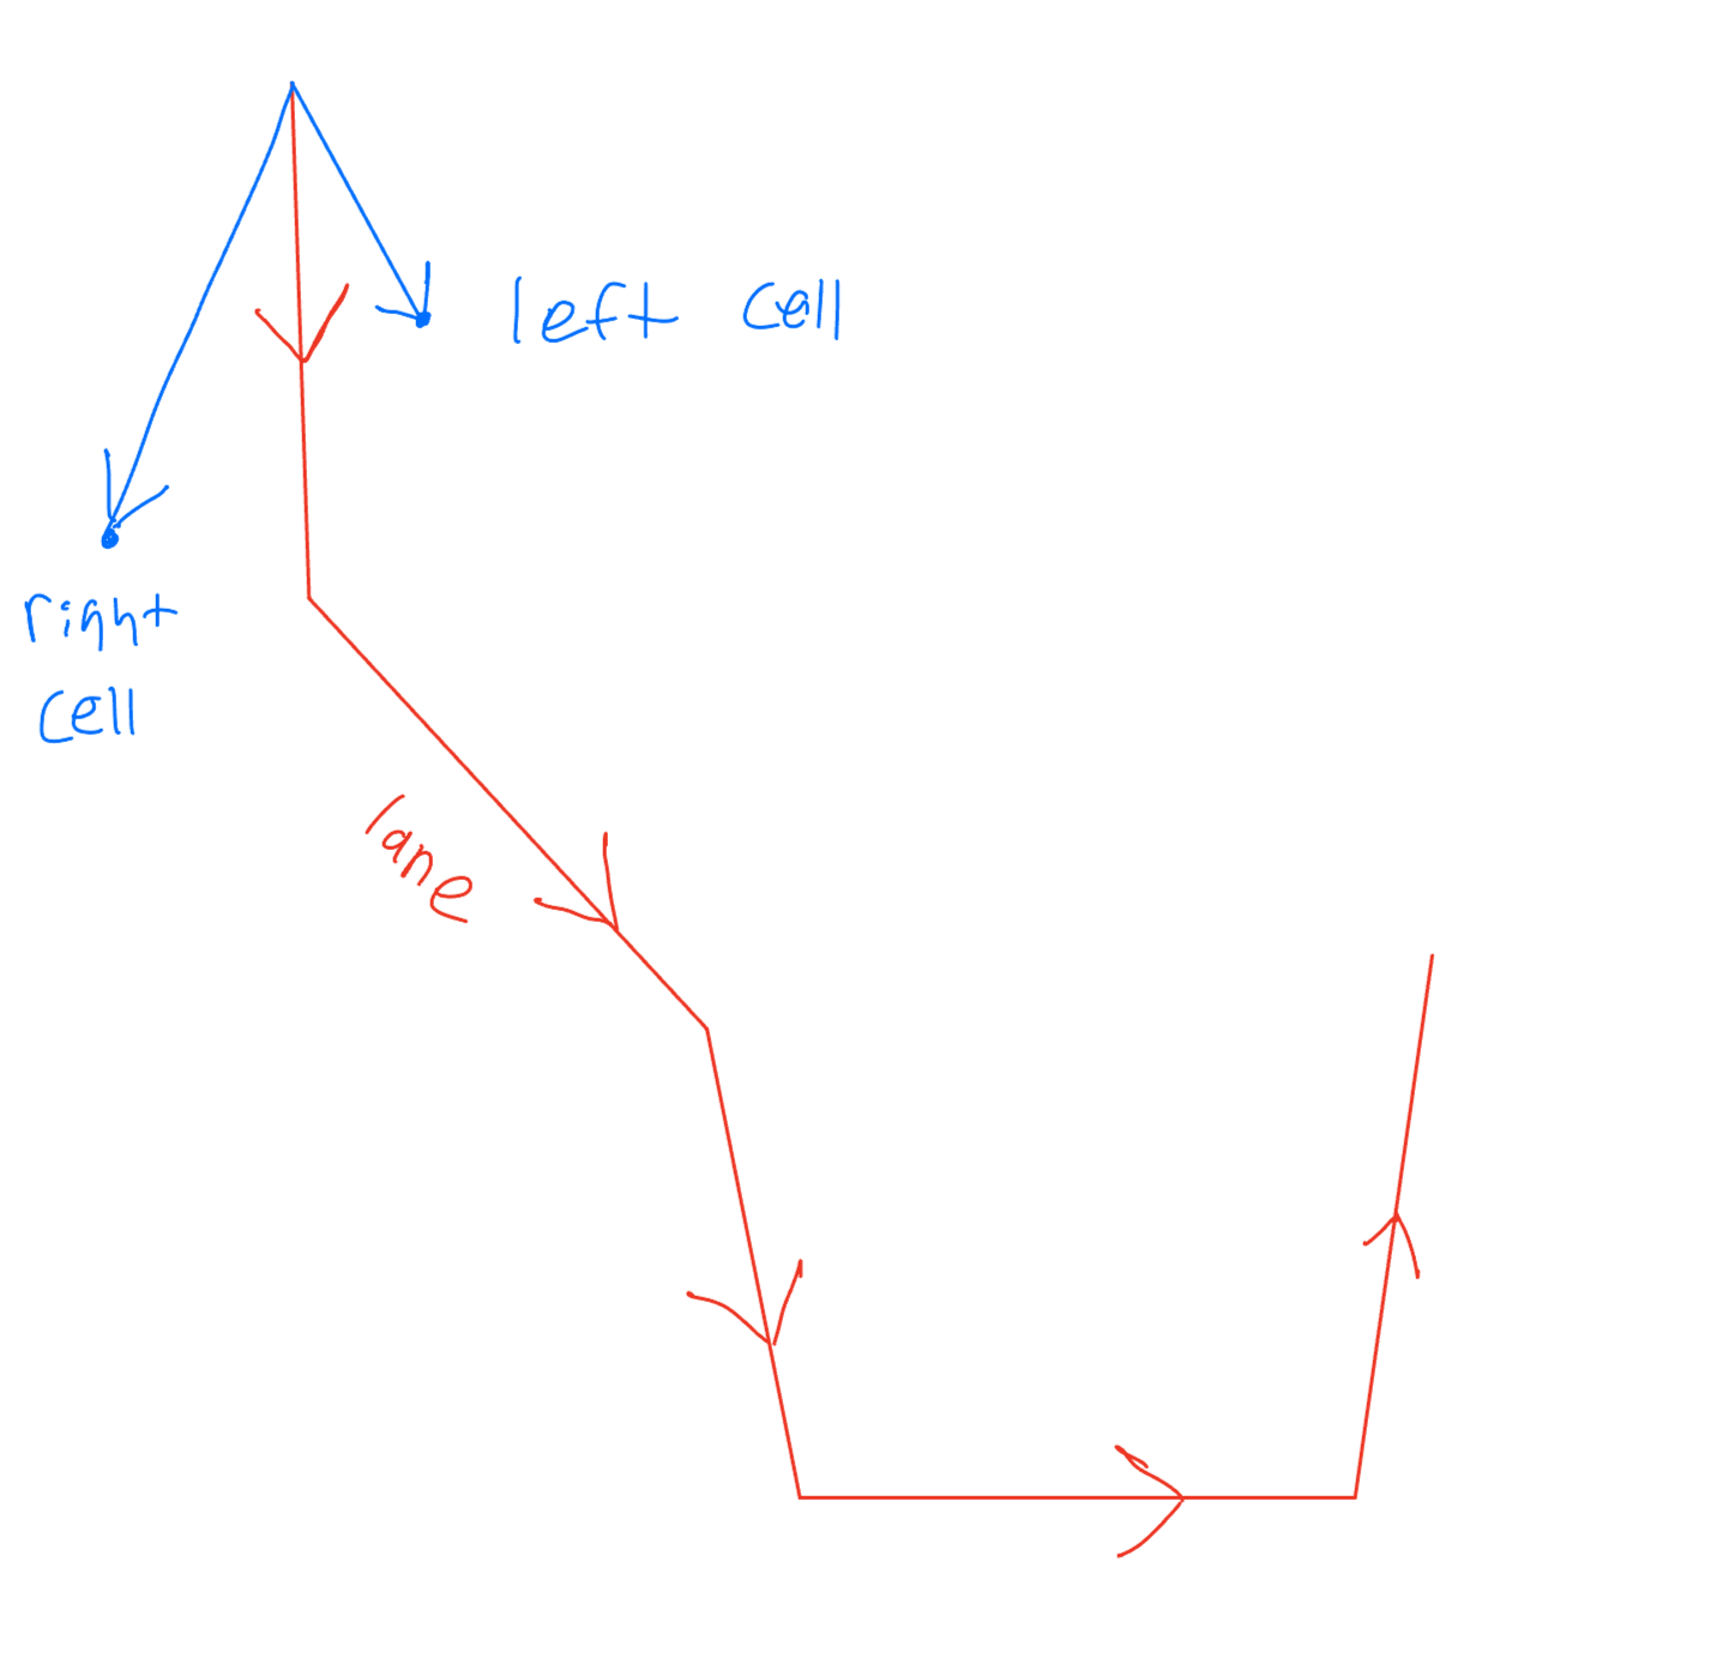 left cell
right
cell
lane